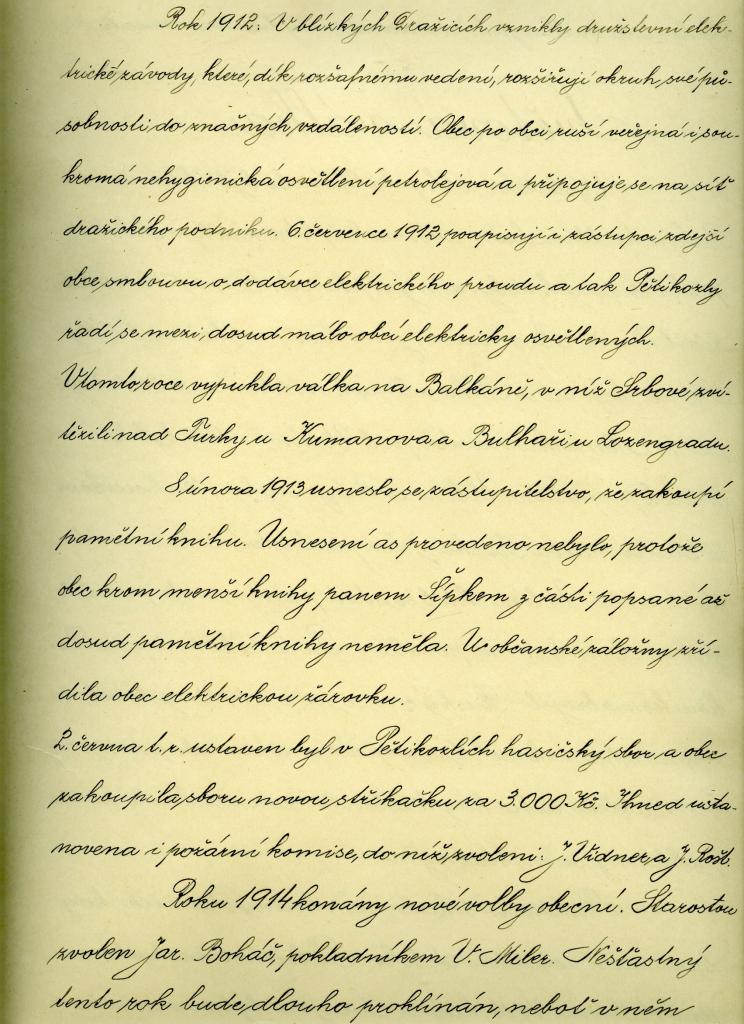 Rok 1912: V blízkých Dražicích vznikly družstevní elek-
trické závody, které, dík rozšafnému vedení, rozšiřují okruh své pů-
sobnosti do značných vzdáleností. Obec po obci ruší veřejná i sou-
kromá nehygienická osvětlení petrolejová a připojuje se na síť
dražického podniku. 6. července 1912 podpisují i zástupci zdejší
obce smlouvu o dodávce elektrického proudu a tak Pětikozly
řadí se mezi dosud málo obcí elektricky osvětlených.
V tomto roce vypukla válka na Balkáně, v níž Srbové zví-
tězili nad Turky u Kumanova a Bulhaři u Lozengradu.
8. února 1913 usneslo se zástupitelstvo, že zakoupí
pamětní knihu. Usnesení as provedeno nebylo, protože
obec krom menší knihy panem Šípkem z části popsané až
dosud pamětní knihy neměla. U občanské záložny zří-
dila obec elektrickou žárovku.
2. června t. r. ustaven byl v Pětikozlích hasičský sbor a obec
zakoupila sboru novou stříkačku za 3.000 Kč. Ihned usta-
novena i požární komise, do níž zvoleni: J. Vidner a J. Rošt.
Roku 1914 konány nové volby obecní. Starostou
zvolen Jar. Boháč, pokladníkem V. Miler. Nešťastný
tento rok bude dlouho proklínán, neboť v něm